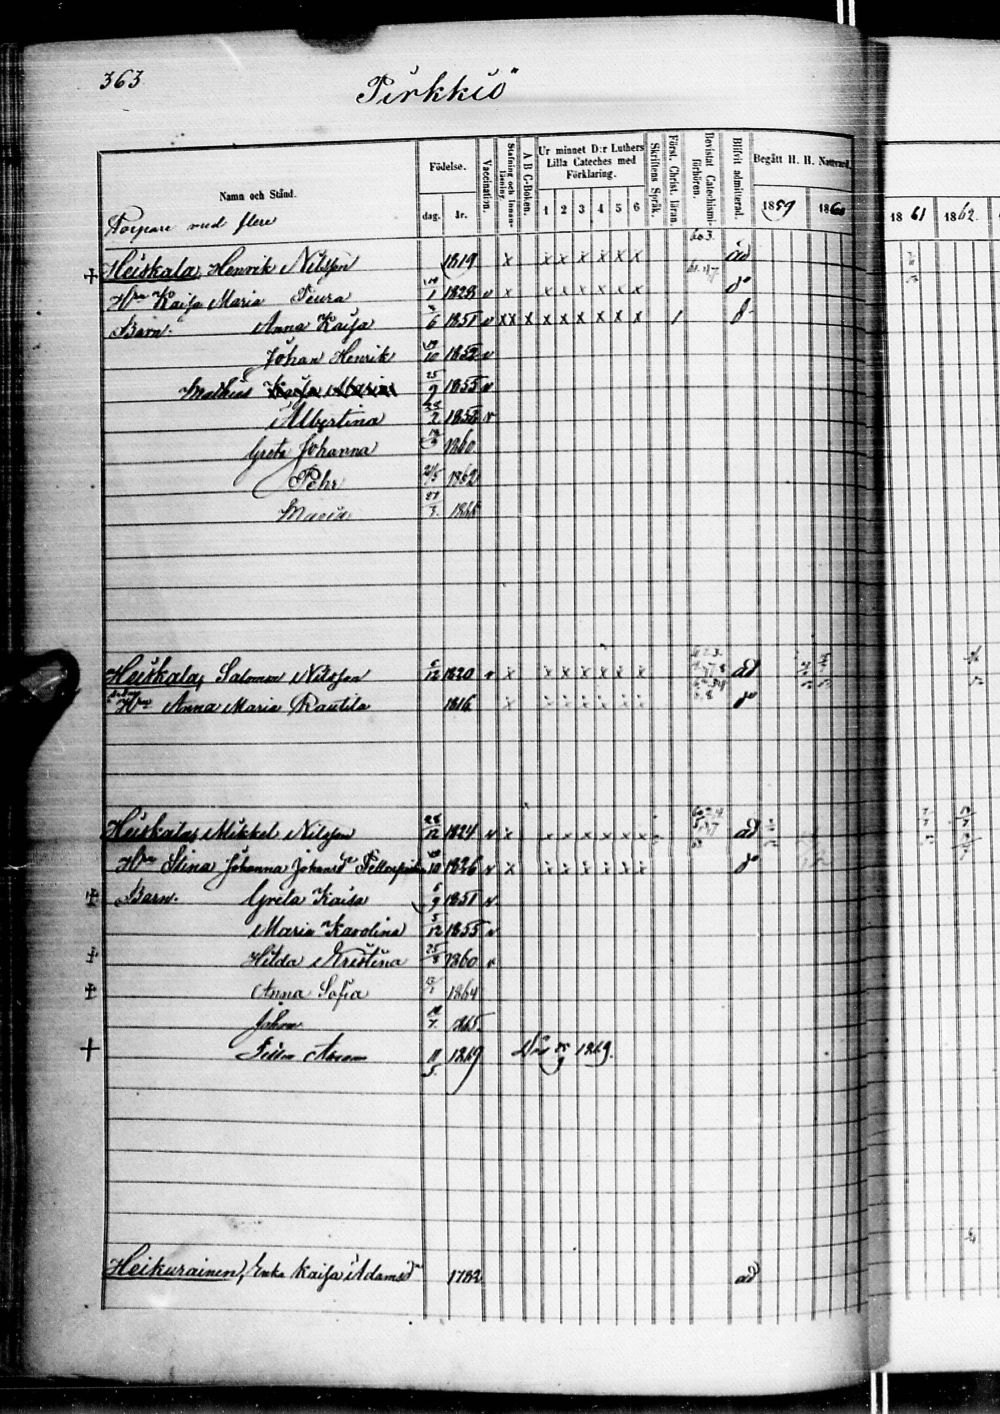 363
Pirkkiö
Namn och Stånd.
Födelse.
dag. år.
Vaccination.
Stafning och Innan-läsning.
A B C-Boken.
Ur minnet D:r Luthers Lilla Cateches med Förklaring.
1 2 3 4 5 6
Skriftens Språk.
Först. Christ. läran.
Bevistat Catechismi-förhören.
Blifvit admitterad.
Begått H. H. Nattvard.
1859 1860 1861 1862.
Torpare med flere
Heiskala, Henrik Nilsson 1819 x x x x x x x ad
Hu Kaisa Maria Peura 1828 v x x x x x x x do
Barn. Anna Kaisa 6 1851 v x x x x x x x x x
Johan Henrik 10 1852 v
Mathias Kaisa Maria 25/9 1855 v
Albertina 1858 v
Greta Johanna 1860
Pehr 21/5 1862
Maria 27/3
Heiskala, Salomon Nilsson 6/12 1820 v x x x x x x x ad
Hu Anna Maria Rautila 1816 x x x x x x x do
Heiskala, Mikkel Nilsson 28/12 1824 v x x x x x x x ad
Hu Stina Johanna Johansdr 10 1826 v x x x x x x x do
Barn. Greta Kaisa 6/9 1851 v
Maria Karolina 5/12 1855 v
Hilda Kristina 25/8 1860 v
Anna Sofia 1864
Johan 1865
11/5 1869 1869.
Heikurainen, Enka Kaisa Adamsdr 1782 ad